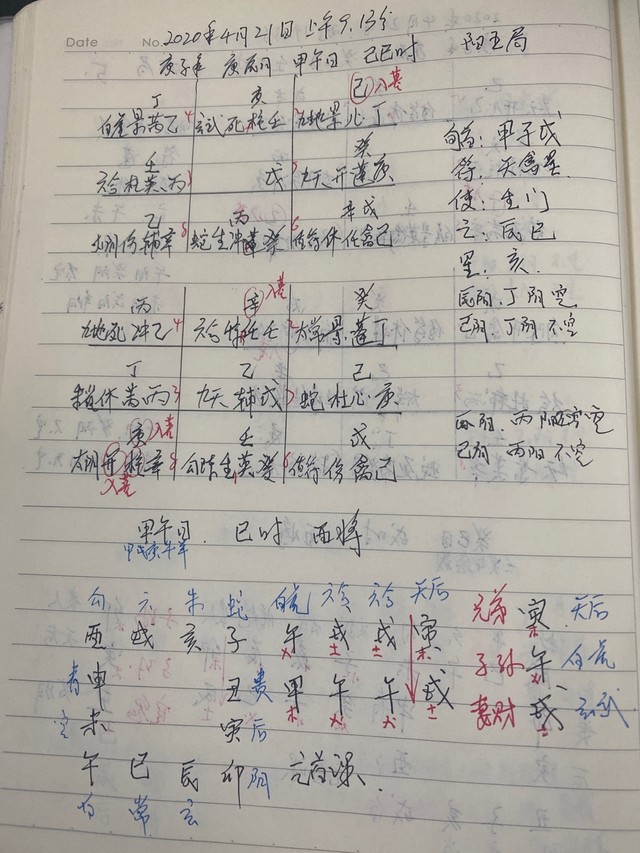 Date No. 2020年4月21日 上午9.13分
庚子年 庚辰月 甲午日 己巳时 阳五局
丁 亥 己入墓
白虎景芮乙4 玄武死柱壬 九地景心丁
壬 癸
六合杜英丙3 戊 九天开蓬庚
乙 丙 辛戊
太阴伤辅辛8 蛇生冲癸 值符休任禽己
旬首:甲子戊
符:天禽星
使:生门
亡:辰巳
星:亥
辰阴,丁阴空
己阴:丁阴不空
丙 辛入墓 癸
九地死冲乙4 六合惊任壬 太常景蓬丁
丁 乙 己
休芮丙3 九天辅戊 蛇杜心庚
庚入墓 壬 戊
太阴开柱辛8 勾陈生英癸 值符伤禽己
入墓
丙阳空
己阴 丙阳不空
甲午日. 巳时 酉将
勾 六 朱 蛇 白虎 六合 六合 天后
酉 戌 亥 子 午火 戌土 戌土 寅木
青 申 丑 贵 甲木 午火 午火 戌土
空 未 寅 后
午 巳 辰 卯 阴 元首课.
白 常 玄
兄弟 寅木 天后
子孙 午火 白虎
妻财 戌土 玄武